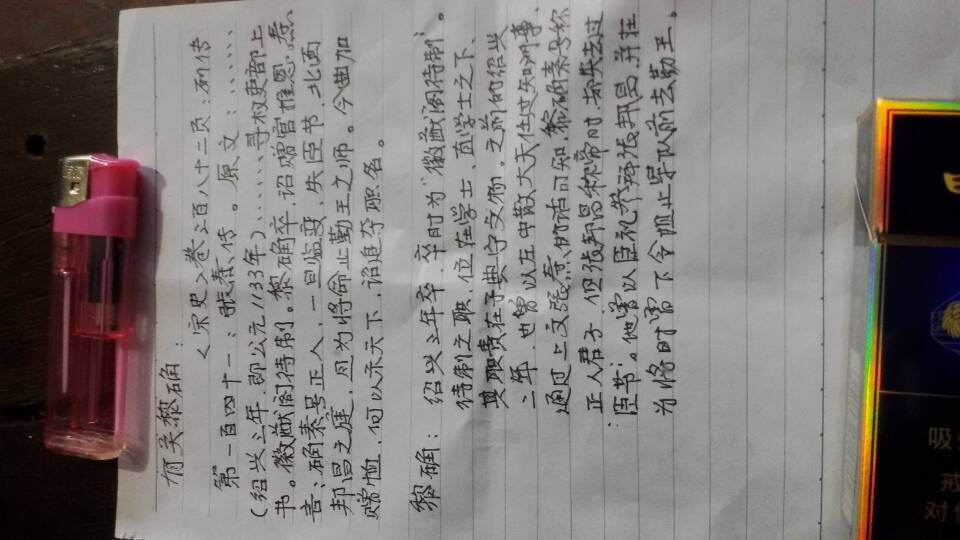 有关黎确:
《宋史》卷三百八十二页:列传
第一百四十一:张焘传。原文:……
(绍兴三年,即公元1133年)……寻权吏部上
书。徽猷阁待制。黎确卒,诏赠官推恩。焘
言:确素号正人,一旦临变,失臣节,北面
邦昌之庭,且为将命止勤王之师。今曲加
赠恤,何可以示天下,诏追夺职名。
黎确:绍兴三年卒,卒时为“徽猷阁待制”。
待制之职,位在学士、直学士之下,
其职责在于典守文物。之前的绍兴
二年,也曾以左中散大夫任过知州事。
通过上文张焘的话可知,黎确素号称
正人君子,但张邦昌称帝时,挤失去过
“臣节”。他曾以臣礼养拜张邦昌,并在
为将时曾下令阻止军队前去勤王。
吸
戒
对